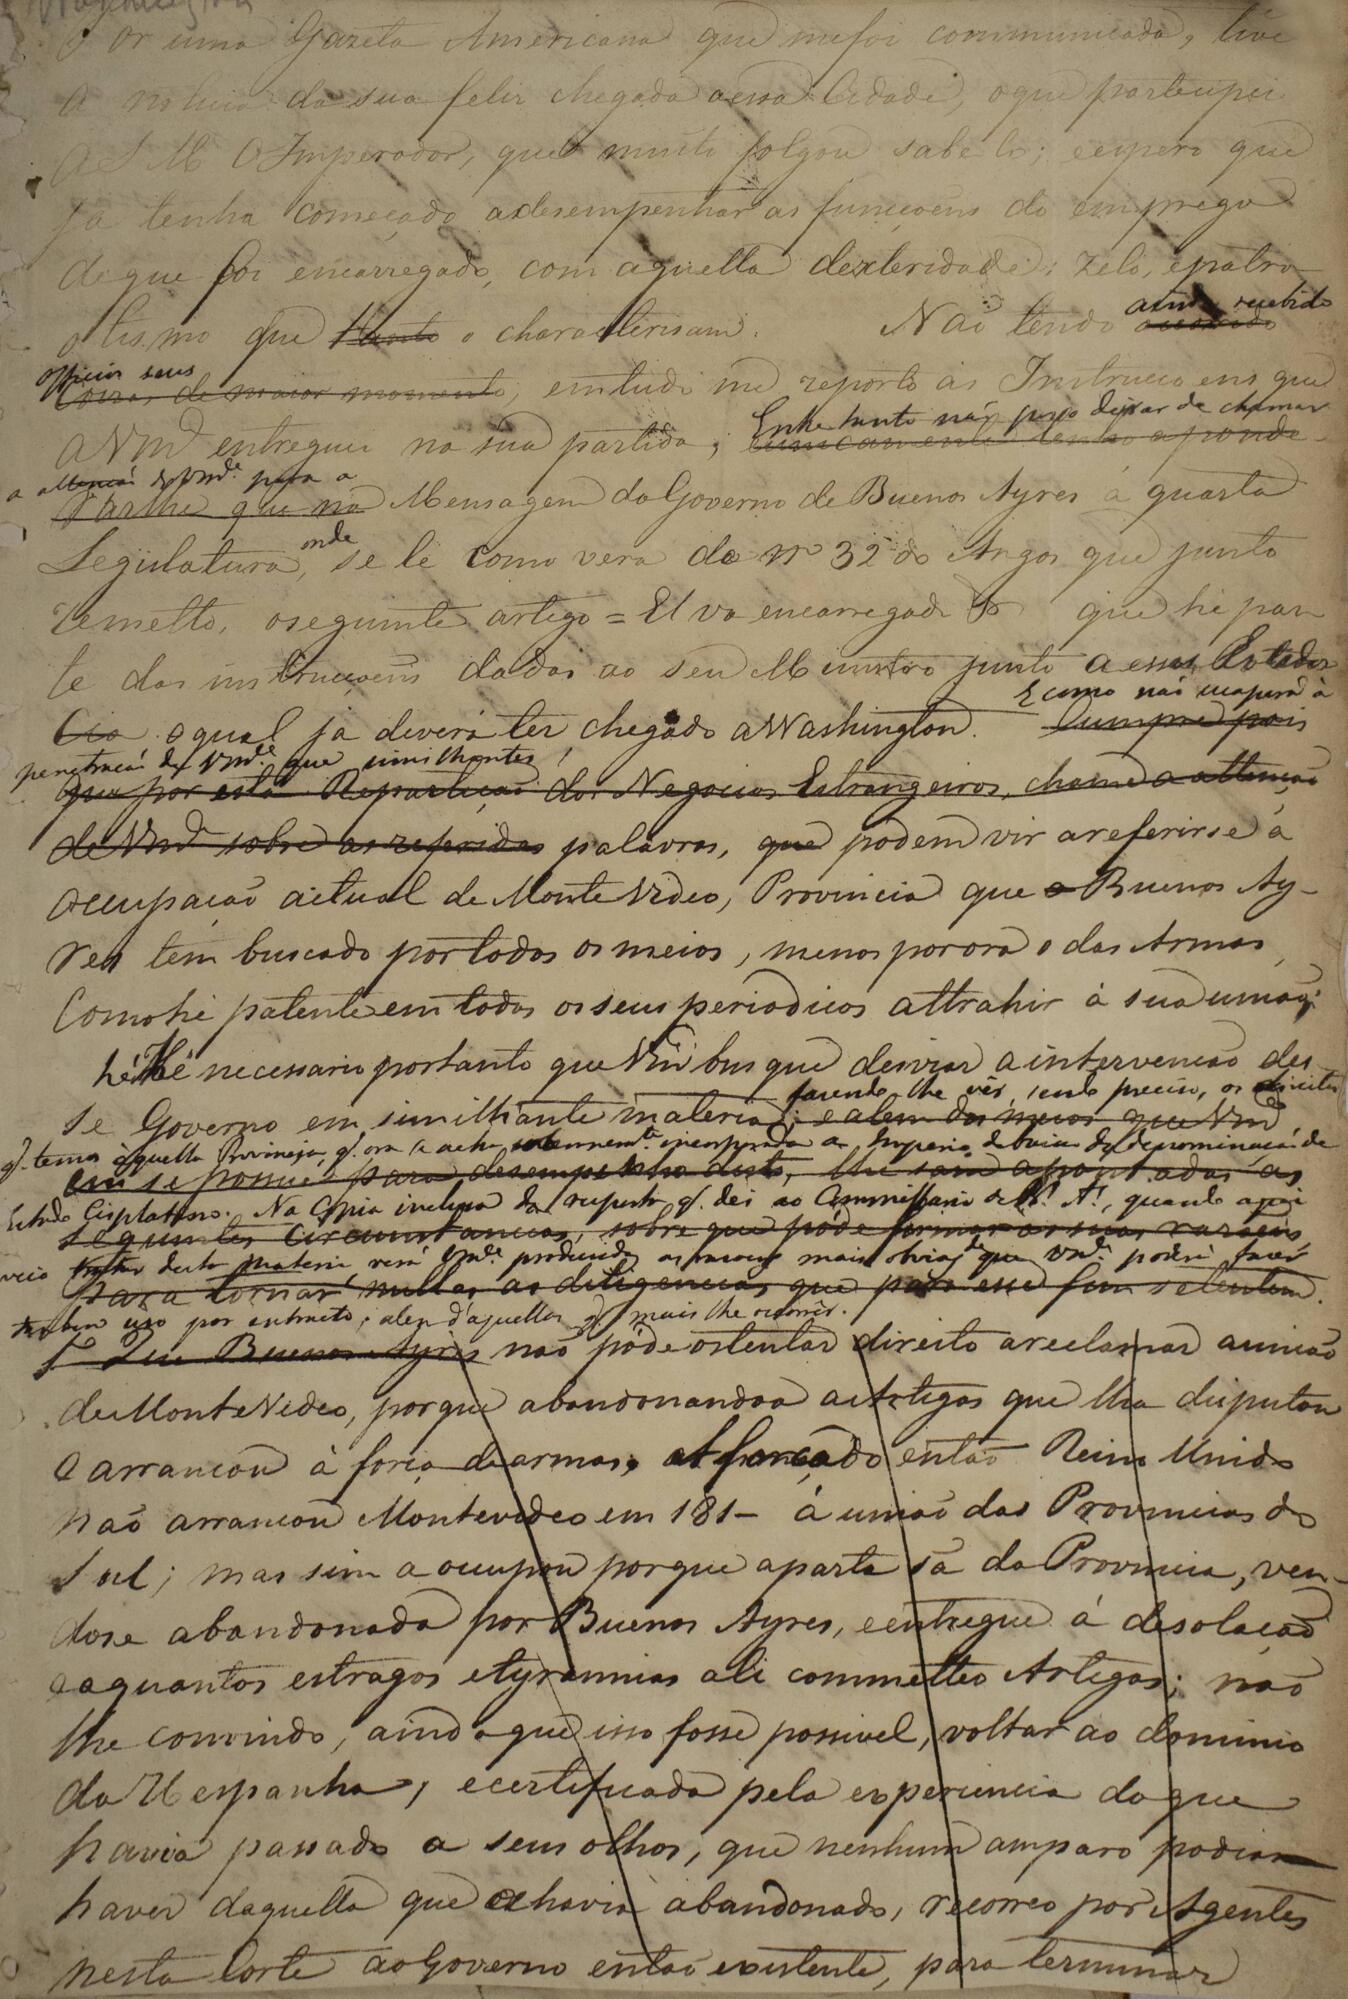 Washington
Por uma Gazeta Americana que me foi communicada, tive
a noticia da sua feliz chegada a essa Cidade, o que participei
a S M O Imperador, que muito folgou sabe lo; e espero que
ja tenha começado a desempenhar as funcçoens do emprego
de que foi encarregado, com aquella dexteridade, zelo, e patri-
otismo que tanto o characterisam. Naõ tendo
ainda recebido
officios seus
Coizas de maior momento, em tudo me reporto ás Instrucçoens que
a Vmce entreguei na sua partida;
Entretanto não posso deixar de chamar
unicamente tenho a ponde-
a attenção de Vmce para a
rar lhe que na Mensagem do Governo de Buenos Ayres á quarta
Legislatura,
onde
se lê como verá do Nº 32 do Argos que junto
remetto, o seguinte artigo = El va encarregado & que hé par
te das instrucçoens dadas ao seu Ministro junto a esses Estados
o qual já deverá ter chegado a Washington.
E como não escapará á
Cumpre pois
penetração de Vmce que similhantes
que por esta Repartição dos Negocios Estrangeiros, chame a attenção
de Vmce sobre as referidas palavras, que podem vir a referirse á
occupaçaõ actual de Monte Video, Provincia que Buenos Ay-
res tem buscado por todos os meios, menos por ora o das Armas,
como hé patente em todos os seus periodicos attrahir á sua uniaõ;
hé Hé necessario portanto que Vm busque desviar a intervençaõ des-
se Governo em similhante materia;
fazendo lhe vêr, sendo preciso, os direitos
e alem dos meios que Vmce
q. temos áquella Provincia, q. ora se acha solemnemte incorporada ao Imperio debaixo da denominação de
em si possue para desempenho disto, lhe sam apontadas as
Estado Cisplatino. Na Copia inclusa da resposta q. dei ao Commissario de Bs As, quando aqui
seguintes circumstancias, sobre que pode formar as suas razoens
veio tratar desta materia verá Vmce produzidas as razoens mais obvias de que Vmce poderá fazer
para tornar nullas as diligencias que para esse fim se tentem.
tambem uso por extracto, alem d'aquellas q. mais lhe ocorrer.
1º Que Buenos Ayres naõ póde ostentar direito a reclamar a uniaõ
de Monte Video, porque abandonando a a Artigas que lha disputou
e arrancou á força de armas, do entaõ Reino Unido
naõ arrancou Montevideo em 181- á uniaõ das Provincias do
Sul; mas sim a occupou porque a parte sã da Provincia, ven-
dose abandonada por Buenos Ayres, e entregue á desolaçaõ
e a quantos estragos e tyrannias ali commetteo Artigas; naõ
lhe convindo, ainda que isso fosse possivel, voltar ao dominio
da Hespanha, e certificada pela experiencia do que
havia passado a seus olhos, que nenhum amparo podia
haver daquelle que a havia abandonado, recorreo por Agentes
nesta Corte ao Governo entaõ existente, para terminar